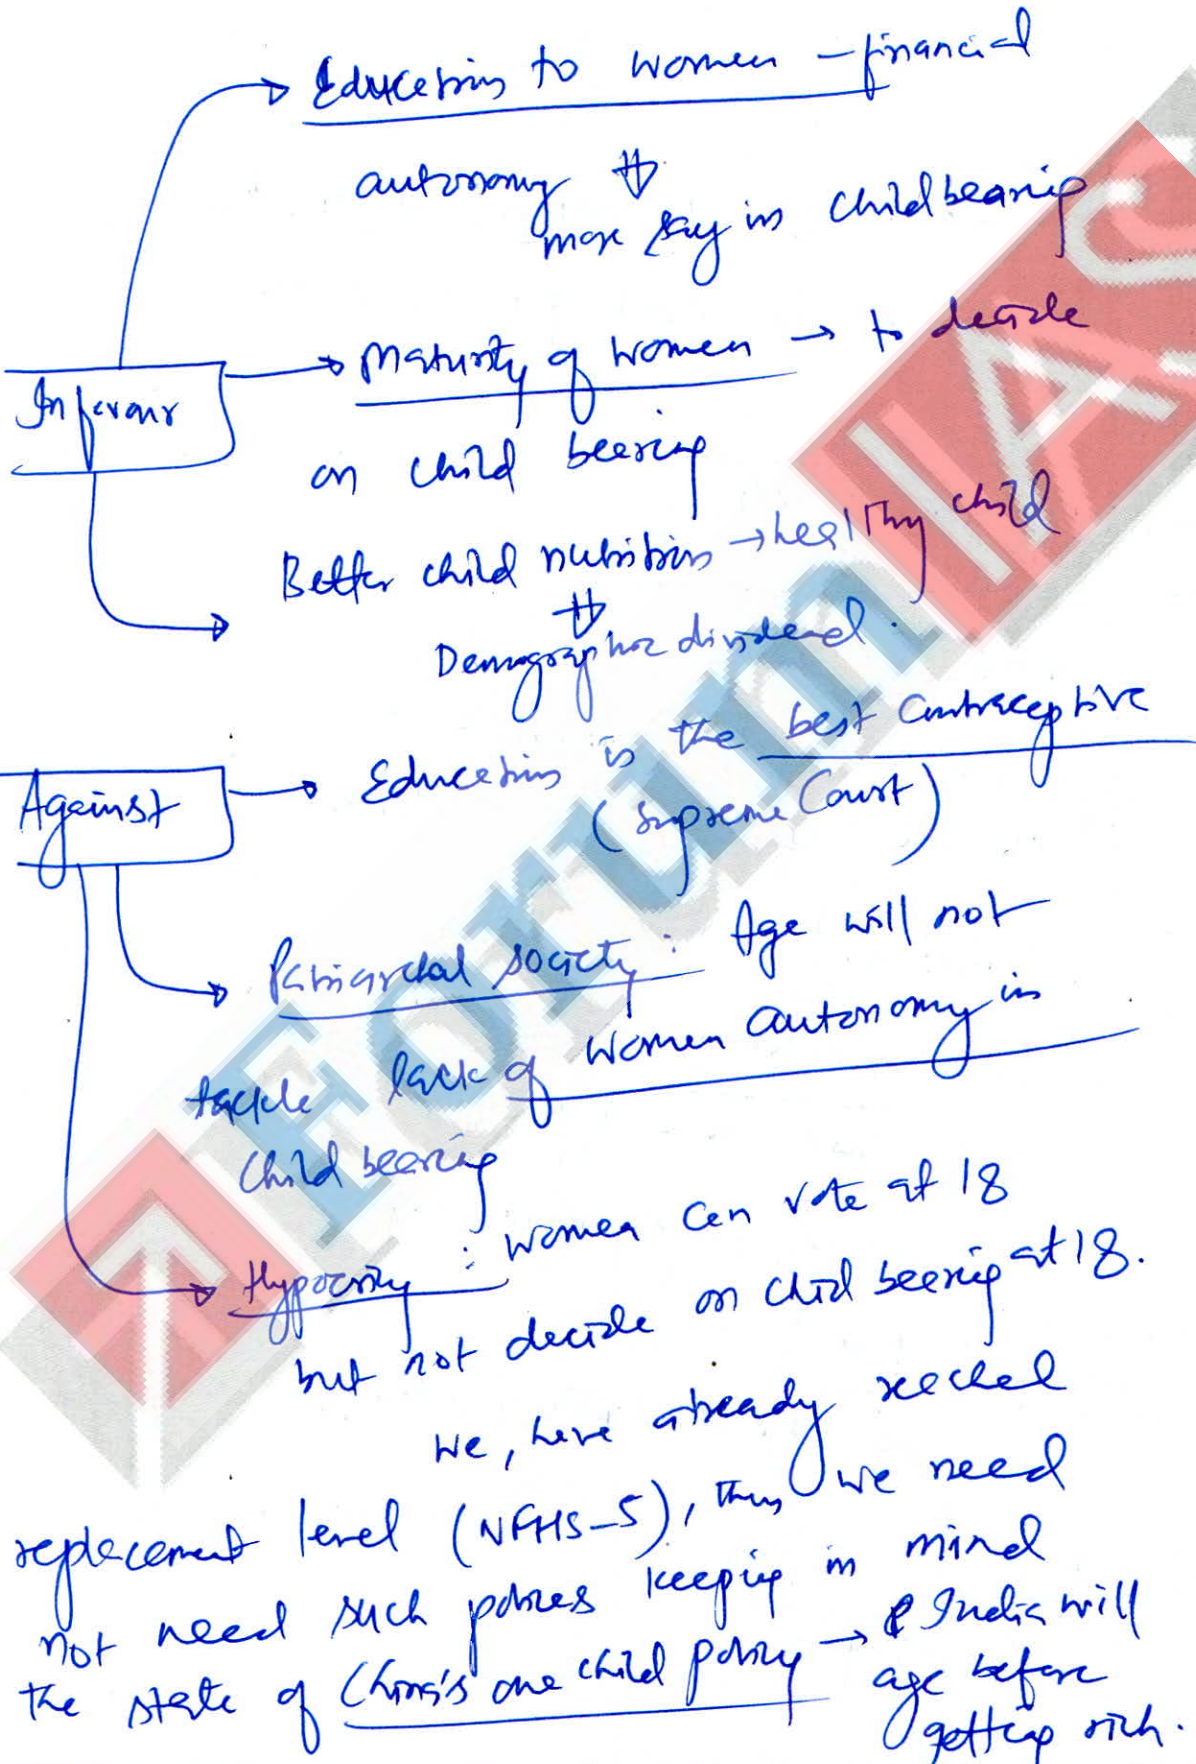 Education to women - financial
autonomy ⇓
more say in child bearing
In favour
→ Maturity of women → to decide
on child bearing
Better child nutrition → healthy child
⇓
Demographic dividend.
Against
→ Education is the best contraceptive
(Supreme Court)
Patriarchal society : Age will not
tackle lack of women autonomy in
child bearing
Hypocrisy : women can vote at 18
but not decide on child bearing at 18.
We, have already reached
replacement level (NFHS-5), thus we need
not need such policies keeping in mind
the state of China's one child policy → India will
age before
getting rich.
Forum IAS